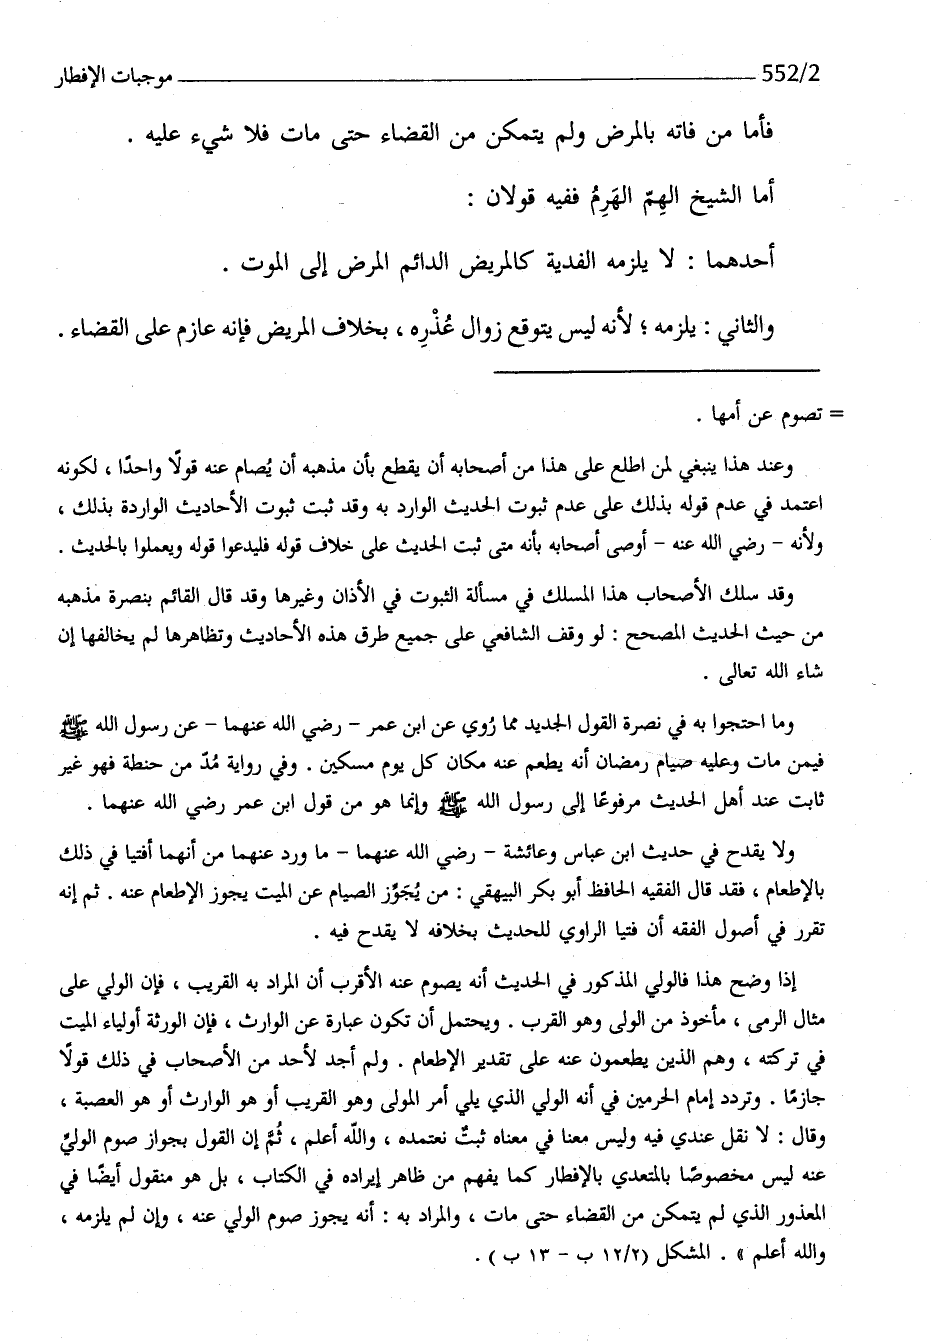 552/2 موجبات الإفطار
فأما من فاته بالمرض ولم يتمكن من القضاء حتى مات فلا شيء عليه .
أما الشيخ الهِمّ الهَرِمُ ففيه قولان :
أحدهما : لا يلزمه الفدية كالمريض الدائم المرض إلى الموت .
والثاني : يلزمه ؛ لأنه ليس يتوقع زوال عُذْرِه ، بخلاف المريض فإنه عازم على القضاء .
= تصوم عن أمها .
وعند هذا ينبغي لمن اطلع على هذا من أصحابه أن يقطع بأن مذهبه أن يُصام عنه قولًا واحدًا ، لكونه
اعتمد في عدم قوله بذلك على عدم ثبوت الحديث الوارد به وقد ثبت ثبوت الأحاديث الواردة بذلك ،
ولأنه - رضي الله عنه - أوصى أصحابه بأنه متى ثبت الحديث على خلاف قوله فليدعوا قوله ويعملوا بالحديث .
وقد سلك الأصحاب هذا المسلك في مسألة الثبوت في الأذان وغيرها وقد قال القائم بنصرة مذهبه
من حيث الحديث المصحح : لو وقف الشافعي على جميع طرق هذه الأحاديث وتظاهرها لم يخالفها إن
شاء الله تعالى .
وما احتجوا به في نصرة القول الجديد مما رُوي عن ابن عمر - رضي الله عنهما - عن رسول الله ﷺ
فيمن مات وعليه صيام رمضان أنه يطعم عنه مكان كل يوم مسكين . وفي رواية مُدّ من حنطة فهو غير
ثابت عند أهل الحديث مرفوعًا إلى رسول الله ﷺ وإنما هو من قول ابن عمر رضي الله عنهما .
ولا يقدح في حديث ابن عباس وعائشة - رضي الله عنهما - ما ورد عنهما من أنهما أفتيا في ذلك
بالإطعام ، فقد قال الفقيه الحافظ أبو بكر البيهقي : من يُجَوِّز الصيام عن الميت يجوز الإطعام عنه . ثم إنه
تقرر في أصول الفقه أن فتيا الراوي للحديث بخلافه لا يقدح فيه .
إذا وضح هذا فالولي المذكور في الحديث أنه يصوم عنه الأقرب أن المراد به القريب ، فإن الولي على
مثال الرمى ، مأخوذ من الولى وهو القرب . ويحتمل أن تكون عبارة عن الوارث ، فإن الورثة أولياء الميت
في تركته ، وهم الذين يطعمون عنه على تقدير الإطعام . ولم أجد لأحد من الأصحاب في ذلك قولًا
جازمًا . وتردد إمام الحرمين في أنه الولي الذي يلي أمر المولى وهو القريب أو هو الوارث أو هو العصبة ،
وقال : لا نقل عندي فيه وليس معنا في معناه ثبتٌ نعتمده ، والله أعلم ، ثُمَّ إن القول بجواز صوم الوليِّ
عنه ليس مخصوصًا بالمتعدي بالإفطار كما يفهم من ظاهر إيراده في الكتاب ، بل هو منقول أيضًا في
المعذور الذي لم يتمكن من القضاء حتى مات ، والمراد به : أنه يجوز صوم الولي عنه ، وإن لم يلزمه ،
والله أعلم » . المشكل (١٢/٢ ب - ١٣ ب ) .